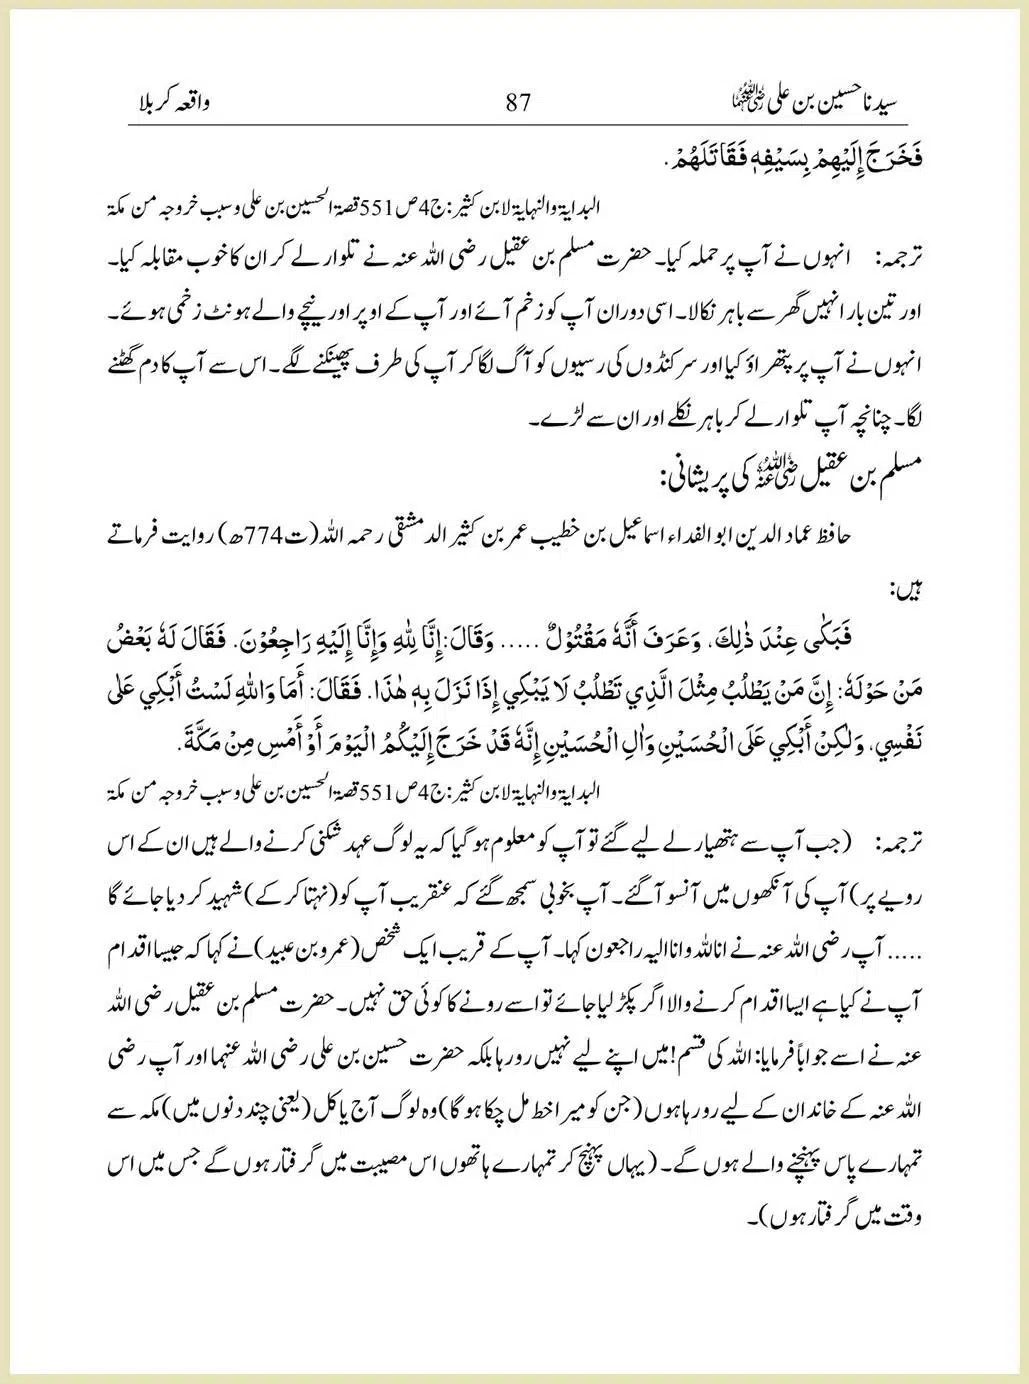 سیدنا حسین بن علی رضی اللہ عنہما 87 واقعہ کربلا
فَخَرَجَ إِلَيْهِمْ بِسَيْفِهٖ فَقَاتَلَهُمْ.
البدایۃ والنہایۃ لابن کثیر: ج4ص551قصۃ الحسین بن علی وسبب خروجہ من مکۃ
ترجمہ: انہوں نے آپ پر حملہ کیا۔ حضرت مسلم بن عقیل رضی اللہ عنہ نے تلوار لے کر ان کا خوب مقابلہ کیا۔
اور تین بار انہیں گھر سے باہر نکالا۔ اسی دوران آپ کو زخم آئے اور آپ کے اوپر اور نیچے والے ہونٹ زخمی ہوئے۔
انہوں نے آپ پر پتھراؤ کیا اور سرکنڈوں کی رسیوں کو آگ لگا کر آپ کی طرف پھینکنے لگے۔ اس سے آپ کا دم گھٹنے
لگا۔ چنانچہ آپ تلوار لے کر باہر نکلے اور ان سے لڑے۔
مسلم بن عقیل رضی اللہ عنہ کی پریشانی:
حافظ عماد الدین ابو الفداء اسماعیل بن خطیب عمر بن کثیر الدمشقی رحمہ اللہ (ت774ھ) روایت فرماتے
ہیں:
فَبَكٰى عِنْدَ ذٰلِكَ، وَعَرَفَ أَنَّهٗ مَقْتُوْلٌ ..... وَقَالَ:إِنَّا لِلّٰهِ وَإِنَّا إِلَيْهِ رَاجِعُوْنَ. فَقَالَ لَهٗ بَعْضُ
مَنْ حَوْلَهٗ: إِنَّ مَنْ يَطْلُبُ مِثْلَ الَّذِي تَطْلُبُ لَا يَبْكِي إِذَا نَزَلَ بِهٖ هٰذَا. فَقَالَ: أَمَا وَاللهِ لَسْتُ أَبْكِي عَلٰى
نَفْسِي، وَلٰكِنْ أَبْكِي عَلَى الْحُسَيْنِ وَاٰلِ الْحُسَيْنِ إِنَّهٗ قَدْ خَرَجَ إِلَيْكُمُ الْيَوْمَ أَوْ أَمْسِ مِنْ مَكَّةَ.
البدایۃ والنہایۃ لابن کثیر: ج4ص551قصۃ الحسین بن علی وسبب خروجہ من مکۃ
ترجمہ: (جب آپ سے ہتھیار لے لیے گئے تو آپ کو معلوم ہو گیا کہ یہ لوگ عہد شکنی کرنے والے ہیں ان کے اس
رویے پر) آپ کی آنکھوں میں آنسو آ گئے۔ آپ بخوبی سمجھ گئے کہ عنقریب آپ کو (نہتا کر کے) شہید کر دیا جائے گا
..... آپ رضی اللہ عنہ نے انا للہ وانا الیہ راجعون کہا۔ آپ کے قریب ایک شخص (عمرو بن عبید) نے کہا کہ جیسا اقدام
آپ نے کیا ہے ایسا اقدام کرنے والا اگر پکڑ لیا جائے تو اسے رونے کا کوئی حق نہیں۔ حضرت مسلم بن عقیل رضی اللہ
عنہ نے اسے جواباً فرمایا: اللہ کی قسم! میں اپنے لیے نہیں رو رہا بلکہ حضرت حسین بن علی رضی اللہ عنہما اور آپ رضی
اللہ عنہ کے خاندان کے لیے رو رہا ہوں (جن کو میرا خط مل چکا ہو گا) وہ لوگ آج یا کل (یعنی چند دنوں میں) مکہ سے
تمہارے پاس پہنچنے والے ہوں گے۔ (یہاں پہنچ کر تمہارے ہاتھوں اس مصیبت میں گرفتار ہوں گے جس میں اس
وقت میں گرفتار ہوں)۔